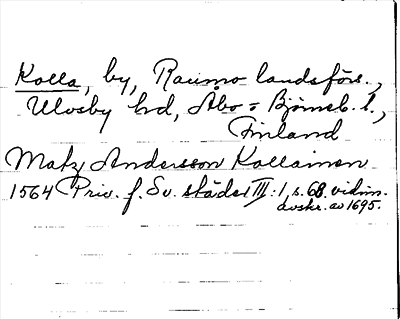 Kolla, by, Raumo landsförs.,
Ulvsby hd, Åbo o Björneb. l.,
Finland
Matz Andersson Kollainen
1564 Priv. f. Sv. städer III:1, s. 68. vidim.
avskr. av 1695.